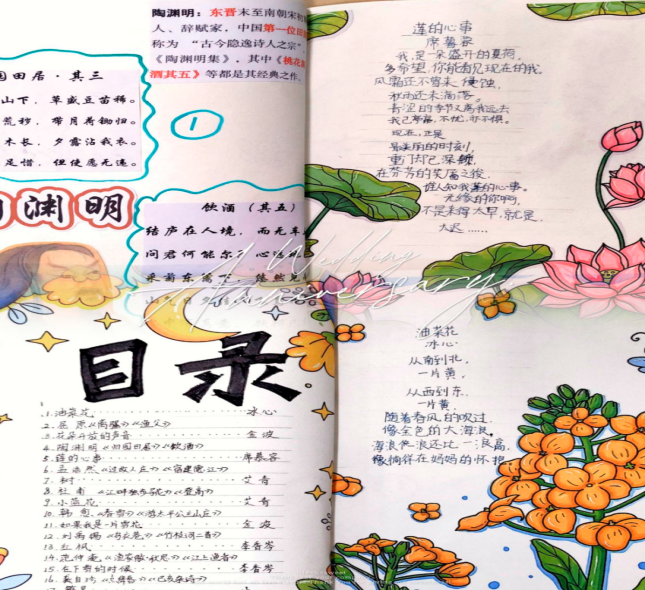 陶渊明：东晋末至南朝宋初
人、辞赋家，中国第一位田
称为 “古今隐逸诗人之宗”
《陶渊明集》，其中《桃花
酒其五》等都是其经典之作。
园田居·其三
山下，草盛豆苗稀。
荒秽，带月荷锄归。
木长，夕露沾我衣。
足惜，但使愿无违。
①
渊明
饮酒（其五）
结庐在人境，而无车
问君何能尔，心
采菊东篱下，悠然见
A Wedding
Anniversary
莲的心事
席慕蓉
我，是一朵盛开的夏荷，
多希望，你能看见现在的我。
风霜还不曾来侵蚀，
秋雨还未滴落。
青涩的季节又离我远去
我已亭亭，不忧，亦不惧。
现在，正是
最美丽的时刻，
重门却已深锁，
在芬芳的笑靥之后，
谁人知我莲的心事。
无缘的你啊，
不是来得太早，就是，
太迟……
目录
1.油菜花 冰心
2.屈原《离骚》《渔父》
3.花朵开放的声音 金波
4.陶渊明《归园田居》《饮酒》
5.莲的心事 席慕蓉
6.孟浩然《过故人庄》《宿建德江》
7.树 艾青
8.杜甫《江畔独步寻花》《登高》
9.小蓝花 艾青
10.韩愈《春雪》
11.如果我是一片雪花 金波
12.刘禹锡《乌衣巷》《竹枝词二首》
13.红枫 李香岑
14.范仲淹《渔家傲·秋思》《江上渔者》
15.在下雪的时候 李香岑
油菜花
冰心
从南到北，
一片黄，
从西到东，
一片黄。
随着春风的吹过
像金色的大海浪。
海浪像浪还比一浪高，
像倘佯在妈妈的怀抱